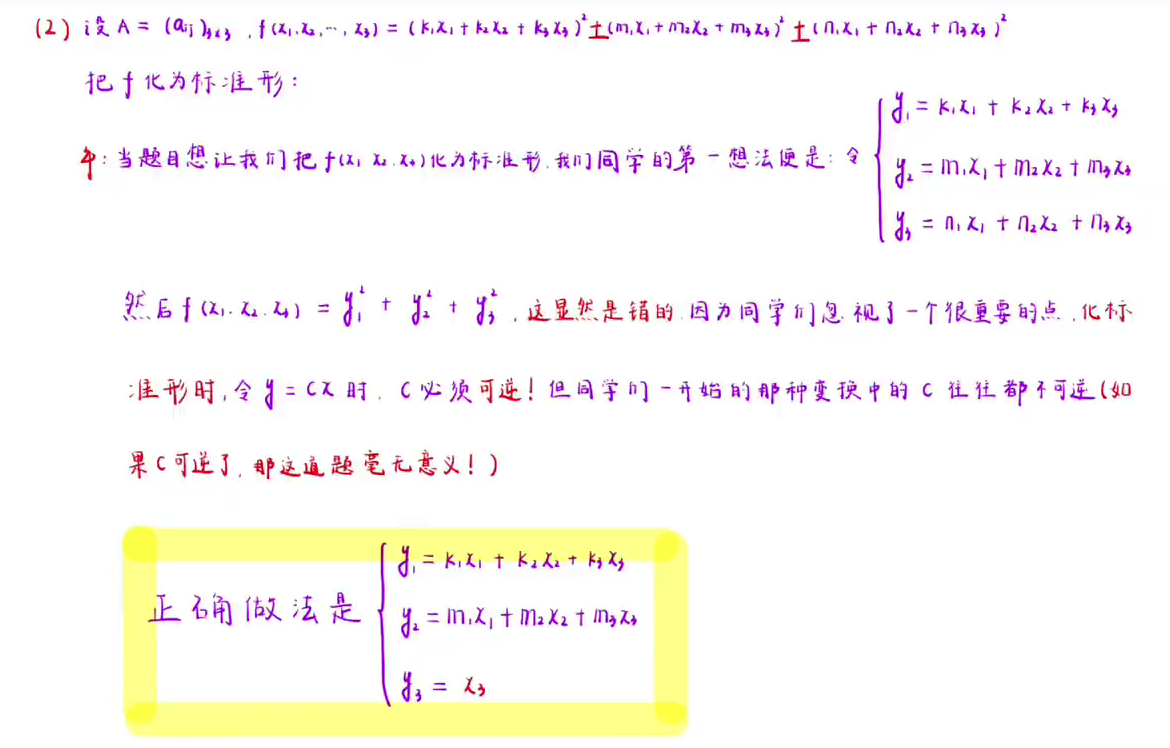 (2) 设 A = (aij)₃ₓ₃ , f(x₁,x₂,…,x₃) = (k₁x₁ + k₂x₂ + k₃x₃)² ± (m₁x₁ + m₂x₂ + m₃x₃)² ± (n₁x₁ + n₂x₂ + n₃x₃)²
把 f 化为标准形:
y₁ = k₁x₁ + k₂x₂ + k₃x₃
当题目想让我们把 f(x₁ x₂ x₃) 化为标准形,我们同学的第一想法便是: 令
y₂ = m₁x₁ + m₂x₂ + m₃x₃
y₃ = n₁x₁ + n₂x₂ + n₃x₃
然后 f(x₁. x₂. x₃) = y₁² + y₂² + y₃² , 这显然是错的. 因为同学们忽视了一个很重要的点, 化标
准形时, 令 y = Cx 时, C 必须可逆! 但同学们一开始的那种变换中的 C 往往都不可逆(如
果 C 可逆了, 那这道题毫无意义! )
y₁ = k₁x₁ + k₂x₂ + k₃x₃
正确做法是
y₂ = m₁x₁ + m₂x₂ + m₃x₃
y₃ = x₃